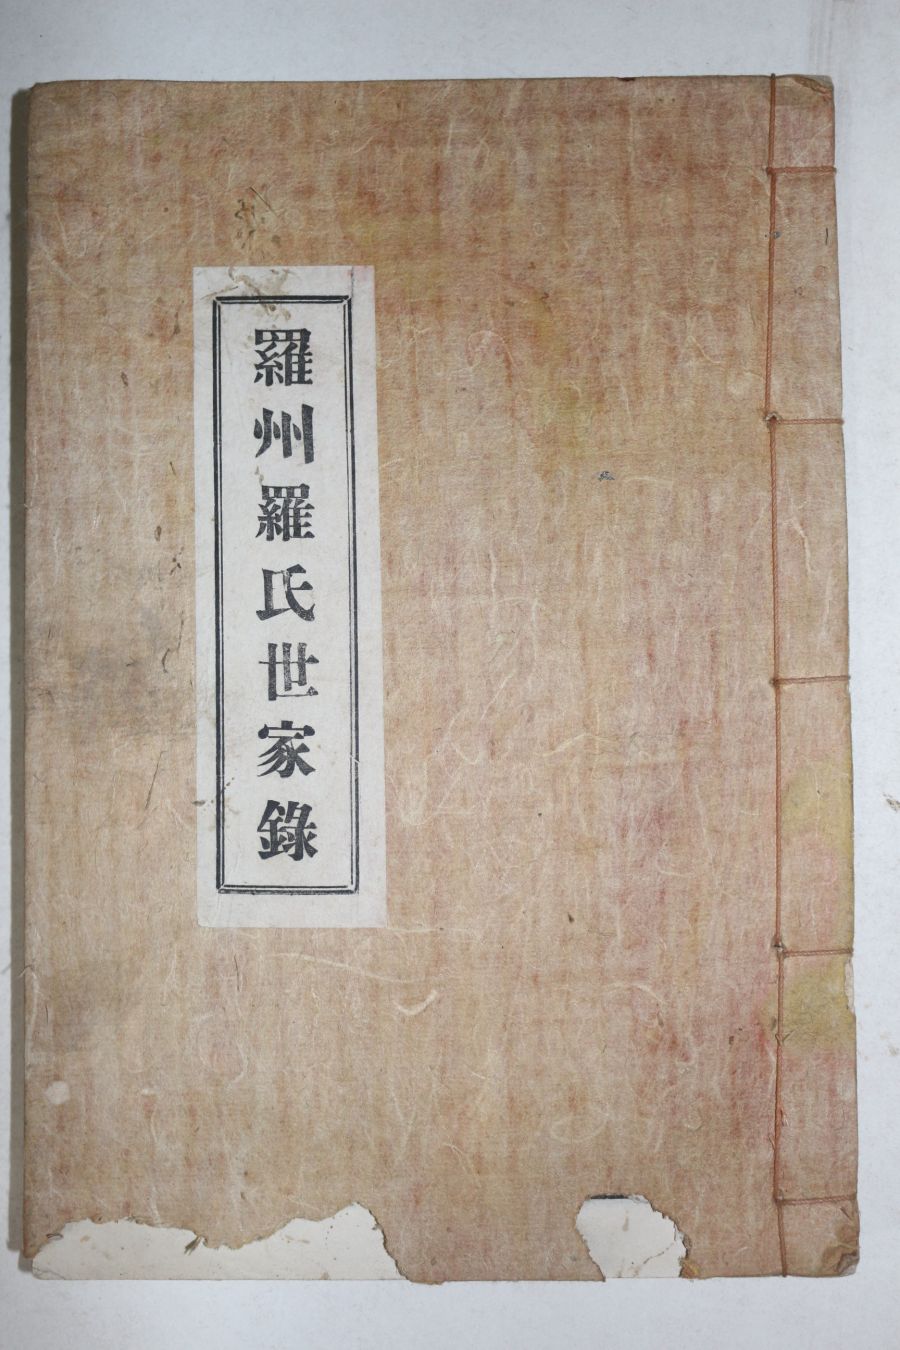 羅州羅氏世家錄